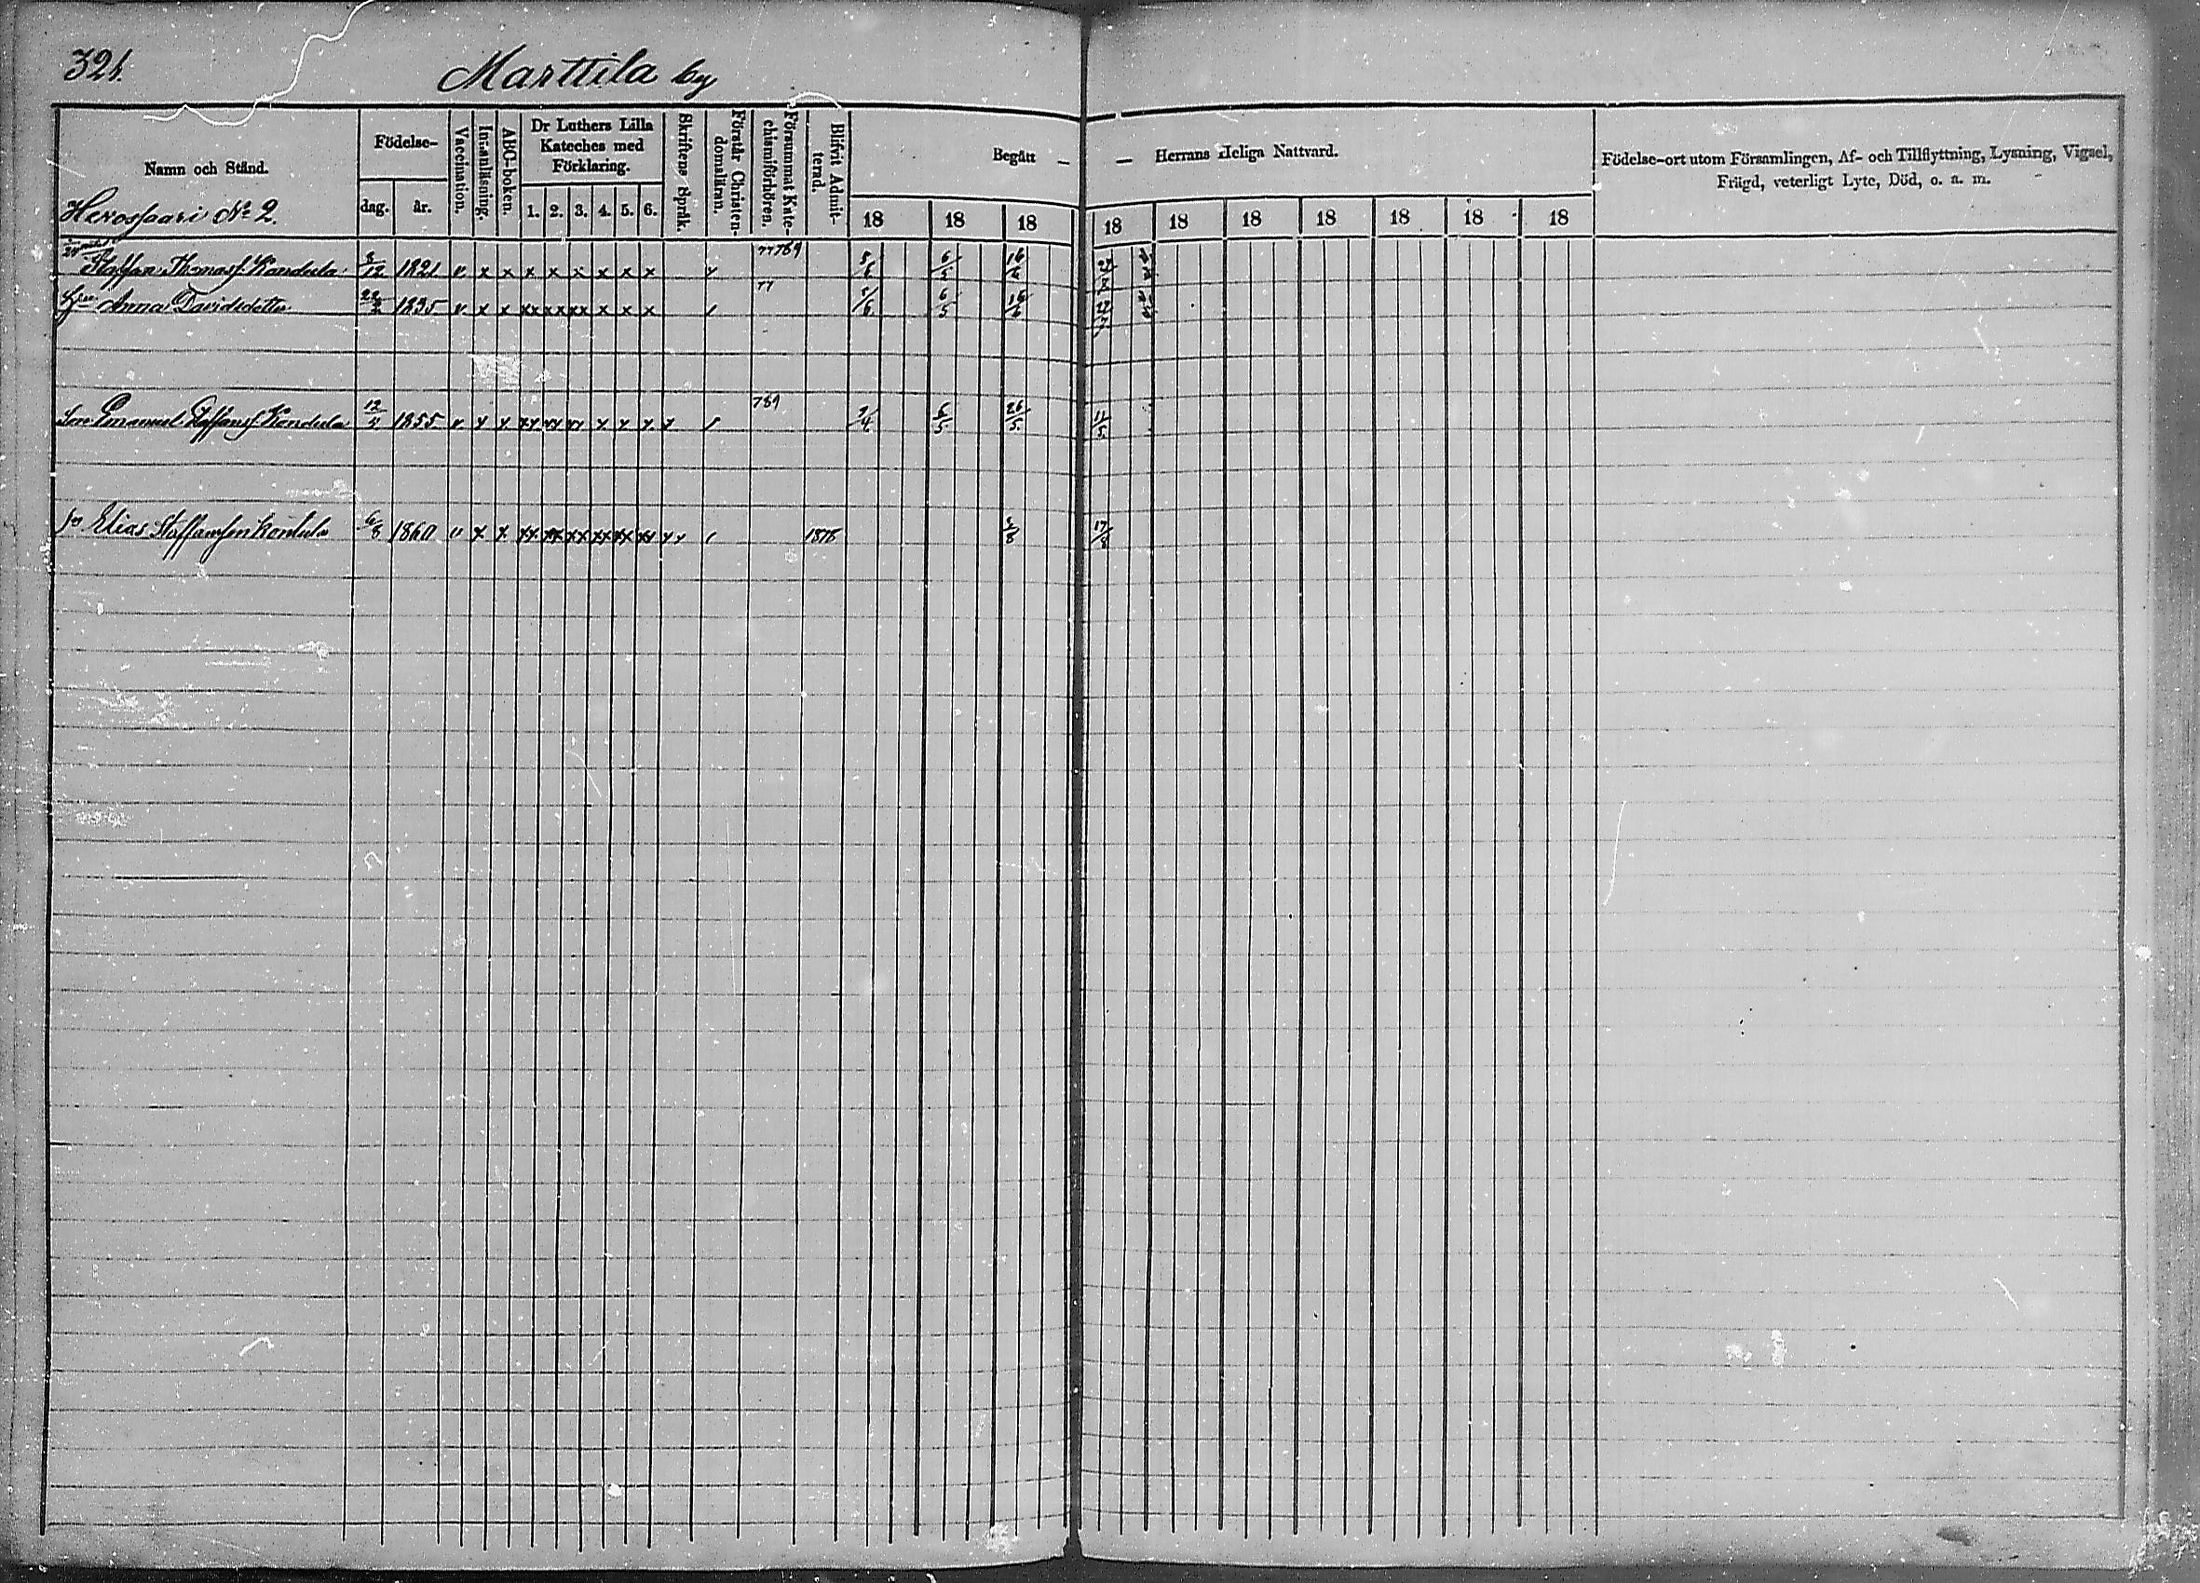 321.
Marttila by
Namn och Stånd.
Födelse-
dag. år.
Vaccination.
Innanläsning.
ABC-boken.
Dr Luthers Lilla
Kateches med
Förklaring.
1. 2. 3. 4. 5. 6.
Skriftens Språk.
Förstår Christen-
domsläran.
Försummat Kate-
chismiförhören.
Blifvit Admit-
terad.
Begått — — Herrans Heliga Nattvard.
18 18 18 18 18 18 18 18 18 18
Födelse-ort utom Församlingen, Af- och Tillflyttning, Lysning, Vigsel,
Frägd, veterligt Lyte, Död, o. a. m.
Herossaari No 2.
Staffan Thomasf. Kandula 8/12 1821 v x x x x x x x x 77789 5/6 6/5 16/6
Anna Davidsdotter 1835 v x x xx xx xx x x x 77 5/6 6/5 16/6
Son Emanuel Staffansf. Kandula 12/5 1855 v x x xx xx xx x x x x 789 7/4 6/5 26/5 11/5
Elias Staffansson 6/8 1860 v x x xx xx xx xx xx xx xx 1878 17/8